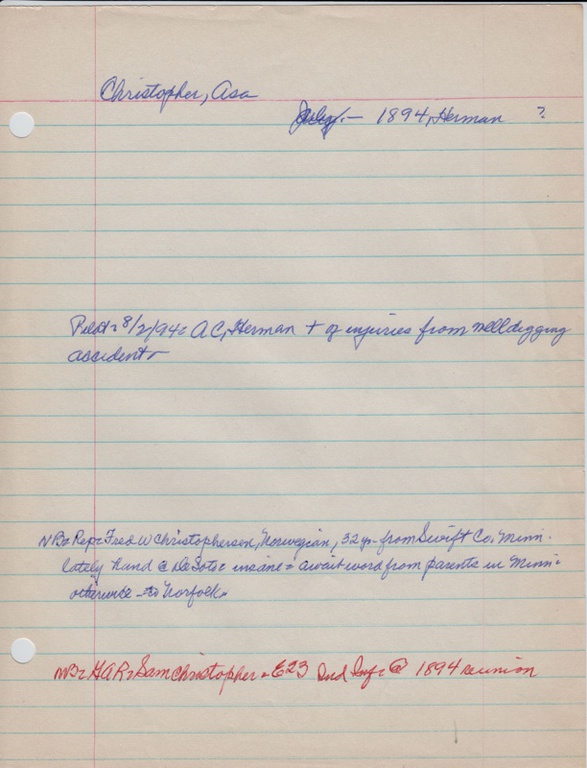 Christopher, Asa
July - 1894, Herman ?
Pilot = 8/2/94 = AC, Herman + of injuries from welldigging
accident -
NB = Rep = Fred W Christophersen, Norwegian, 32 yr - from Swift Co. Minn.
lately hand @ DeSoto = insane = await word from parents in Minn =
otherwise - to Norfolk -
NB = GAR = Sam Christopher - E23 Ind Inf = @ 1894 reunion